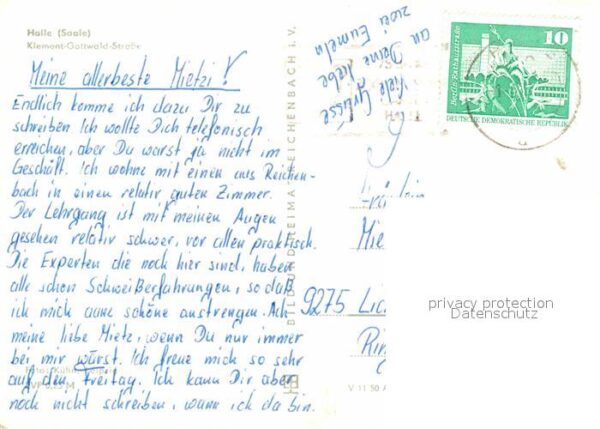 Halle (Saale)
Klement-Gottwald-Straße
Meine allerbeste Mietzi!
Endlich komme ich dazu Dir zu
schreiben Ich wollte Dich telefonisch
erreichen, aber Du warst ja nicht im
Geschäft. Ich wohne mit einen aus Reichen-
bach in einen relativ guten Zimmer.
Der Lehrgang ist mit meinen Augen
gesehen relativ schwer, vor allen praktisch.
Die Experten die noch hier sind, haben
alle schon Schweißerfahrungen, so daß
ich mich ganz schöne anstrengen. Ach
meine liebe Mietz, wenn Du nur immer
bei mir würst. Ich freue mich so sehr
auf den Freitag. Ich kann Dir aber
noch nicht schreiben, wann ich da bin.
BILD UND HEIMAT REICHENBACH i. V.
V 11 50 A
Viele Grüsse
an Deine liebe
zwei Eumeln
10
Berlin, Rathausstraße
DEUTSCHE DEMOKRATISCHE REPUBLIK
Mie
9275 Lich
privacy protection
Datenschutz